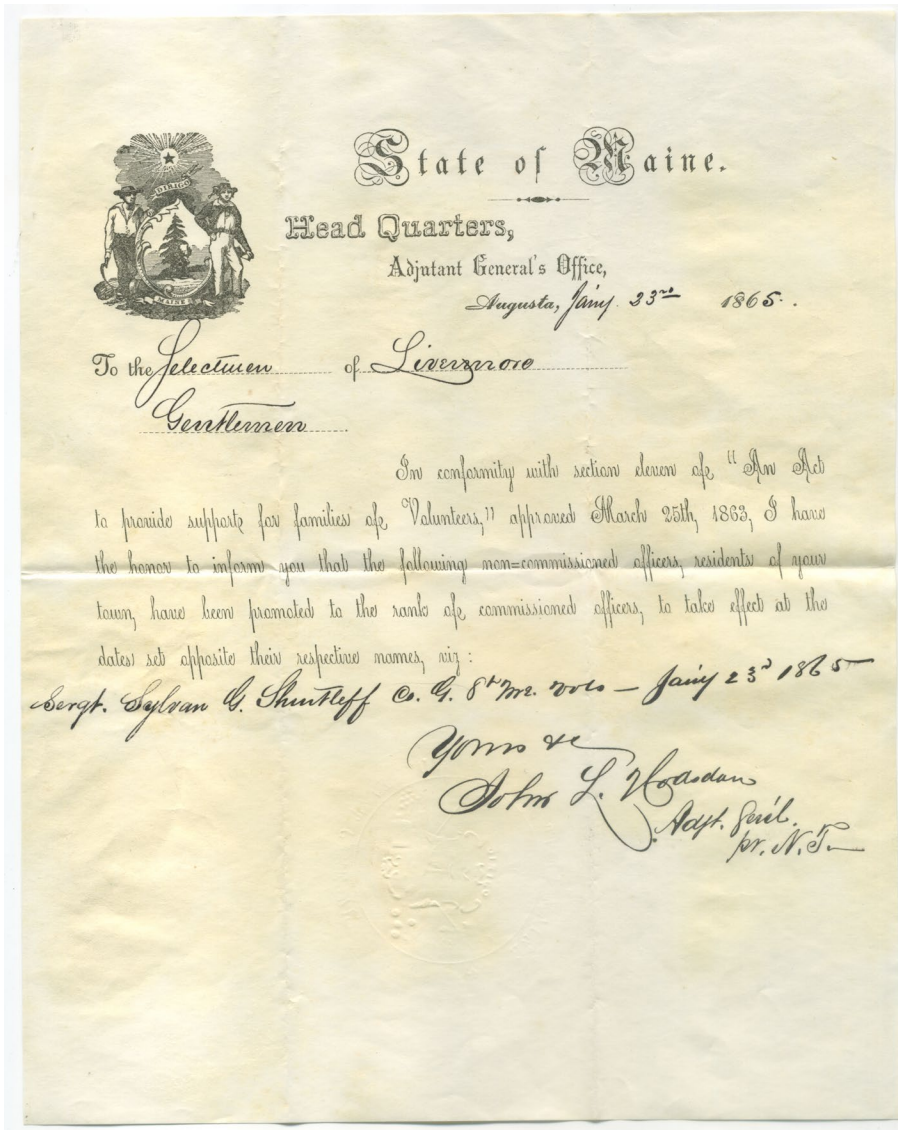 DIRIGO
MAINE
State of Maine.
Head Quarters,
Adjutant General's Office,
Augusta, Jany. 23rd 1865.
To the Selectmen of Livermore
Gentlemen
In conformity with section eleven of "An Act
to provide support for families of Volunteers," approved March 25th, 1863, I have
the honor to inform you that the following non=commissioned officers, residents of your
town, have been promoted to the rank of commissioned officers, to take effect at the
dates set opposite their respective names, viz:
Sergt. Sylvan G. Shurtleff Co. G. 8th Me. Vols — Jany 23d 1865
Yours &c
John L. Hodsdon
Adjt. Genl.
pr. N. T.